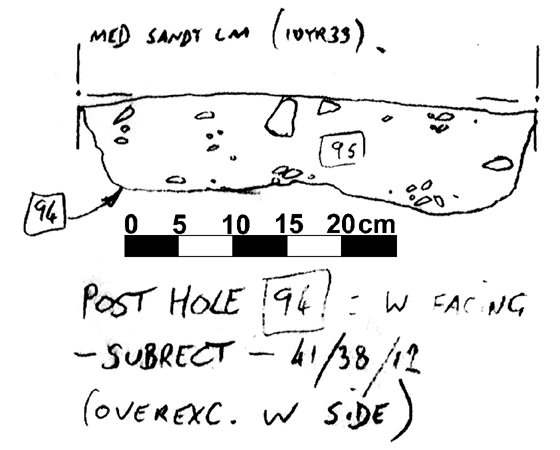 MED SANDY LM (10YR33).
95
94
0 5 10 15 20cm
POST HOLE 94 : W FACING
- SUBRECT - 41/38/12
(OVEREXC. W SIDE)